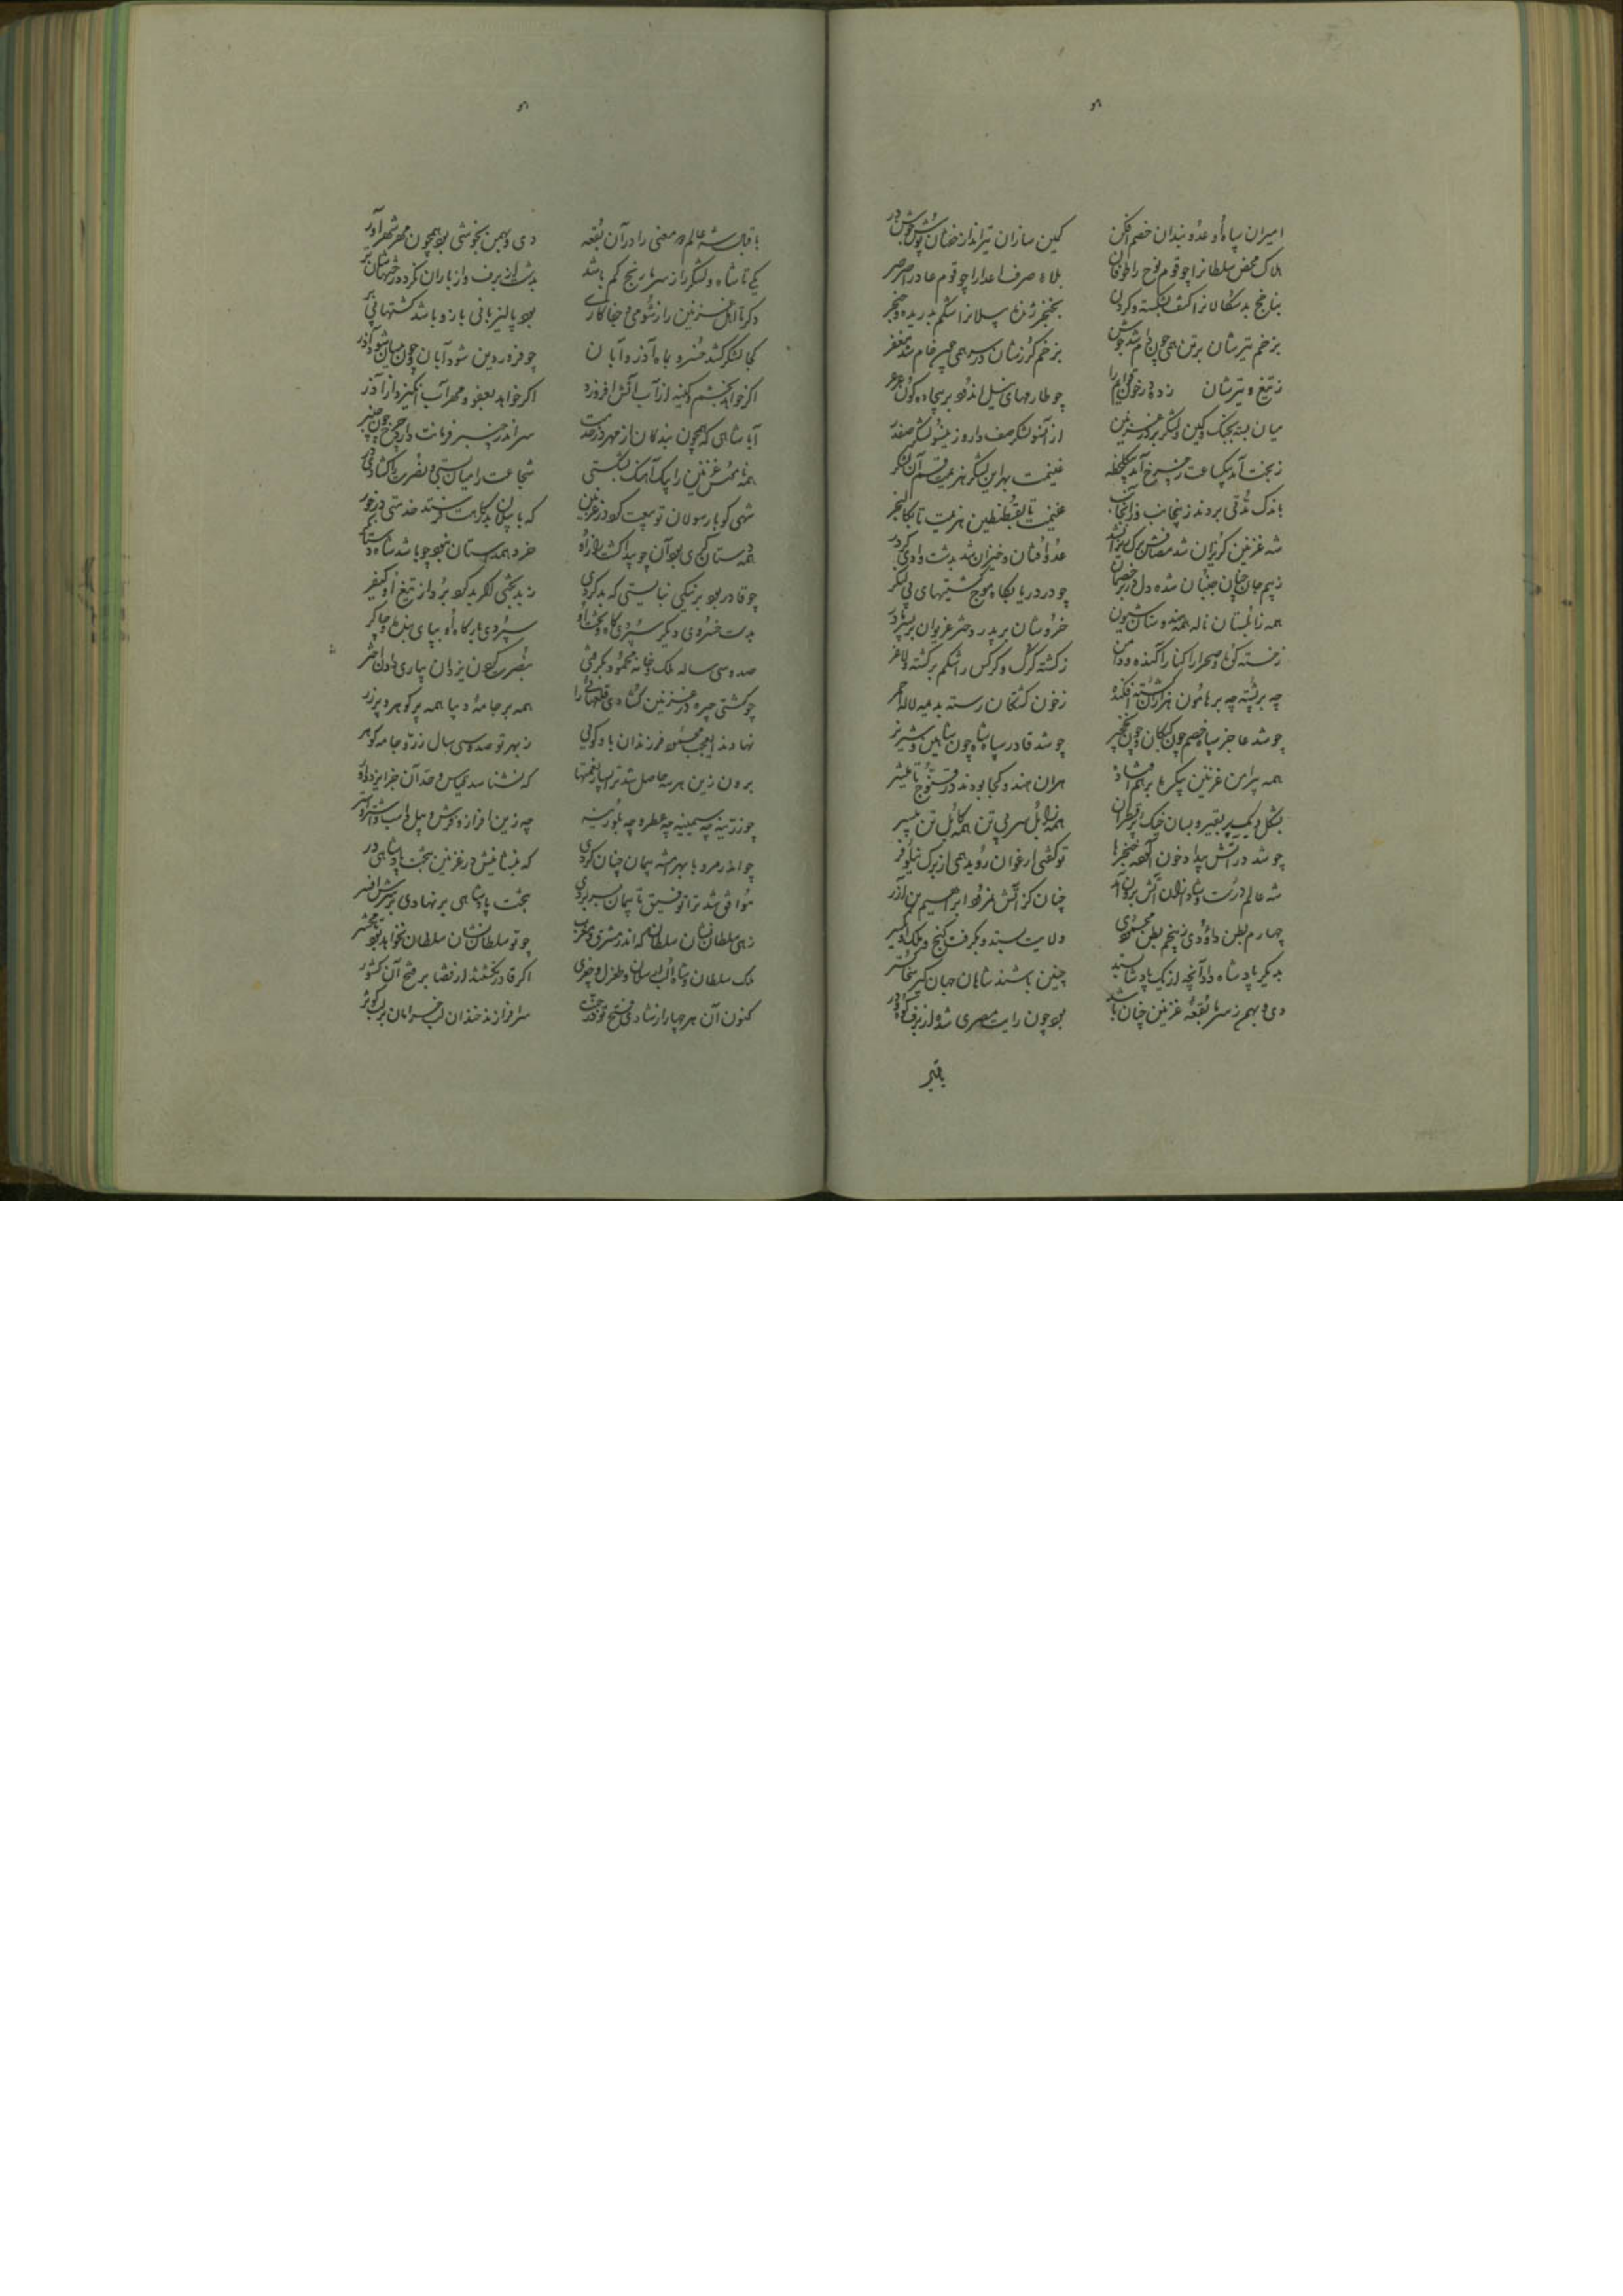 امیران سپاه او عدو بندان خصم افکن کمین سازان تیرانداز خفتان پوش
هلاک محض سلطانرا چو قوم نوح را طوفان بلاء صرف اعدا را چو قوم عاد را صرصر
بناجخ بدسکالانرا کتف بشکسته و گردن بخنجر ژنده پیلانرا شکم بدریده و خنجر
بزخم تیرشان بر تن همی چون دام شد جوشن بزخم گرزشان در سر همی چون خام شد مغفر
ز تیغ و تیرشان زده در خون چو طارمهای نیل اندود بر بیجاده گون عرعر
میان بسته بجنگ و کین و لشکر بر در غزنین از آنسو لشکر صف دار و زینسو لشکر صفدر
ز بخت آمد بیکساعت ز چرخ آمد بیکلحظه غنیمت بهر این لشکر هزیمت قسم آن لشکر
باندک تفی بردند زینجانب وز آنجانب غنیمت تا بقسطنطین هزیمت تا بکالنجر
شه غزنین گریزان شد عدو افتان و خیزان شد بدشت و وادی و کردر
ز بیم جان چنان جنبان شده دل در بر خصمان چو در دریا بگاه موج کشتیهای بی لنگر
همه زابلستان ناله همه هندوستان شیون خروشان بر پدر دختر غریوان بر پسر مادر
ز خسته کوه و صحرا را کنار آکنده و دامن ز کشته گرگ و کرکس را شکم پر گشته و لاغر
چه بر پشته چه بر هامون هزاران کشته افکنده ز خون کشتگان رسته بدیمه لاله احمر
چو شد عاجز سپاه خصم چون کبکان و چون نخجیر چو شد قادر سپاه شاه چون شاهین و شیر نر
همه پیرامن غزنین پیکرها بر هم افتاده هر آن هندو کجا بودند در قنوج تا بربر
بشکل گنبد پر قیر و بسان خیک پر قطران همه زابل سر بی تن همه کابل تن بی سر
چو شد در آتش پیدا خون آلوده خنجرها تو گفتی ارغوان روید همی از برگ نیلوفر
شه عالم درست و شادمان زان آتش برون آمد چنان کز آتش نمرود ابراهیم بن آزر
چهارم بطن داودی ز پنجم بطن محمودی ولایت بستد و بگرفت گنج و ملک و سریر
بدیگر پادشاه داد آنچه از یک پادشا بستد چنین باشند شاهان جهانگیر سخاگستر
دی و بهمن ز سرما بقعه غزنین چنان باشد بود چون رایت مصری شده از برف کوه و در
باقبال
باقبال شه عالم و معنی را در آن بقعه دی و بهمن بخوشی بود همچون مهر و شهریور
یکی تا شاه و لشکر را ز سرما رنج کم باشد بدشت از برف و از باران نکرده رختهاشان تر
دگر تا اهل غزنین را ز شومی و جفاکاری بود پالیز بی بار و باشد کشتها بی بر
کجا لشکر کشد خسرو بماه آذر و آبان چو فروردین شود آبان و چون نیسان شود آذر
اگر خواهد بخشم و کینه از آب آتش افروزد اگر خواهد بعفو و مهر آب انگیزد از آذر
آیا شاهی که همچون بندگان از مهر در خدمت سر اندر چنبر فرمانت دارد چرخ چون چنبر
همه غزنین را بیک آهنگ بشکستی شجاعت را میان بستی و نصرت را گشادی در
شهی کو با رسولان تو بیعت کرد در غزنین که با پیلان بدرگاهت فرستد خدمتی در خور
همه دستان گری بود آن چو پیدا گشت راز او خرد همداستان نبود چو باشد شاه دستانگر
چو قادر بود بر نیکی نبایستی که بد کردی ز بدبختی مگر بد کرد و برد از تیغ او کیفر
بدست خسروی دیگر سپردی گاه و تخت او سپردی بارگاه او بپای بنده و چاکر
صد و سی ساله ملک و خانه محمود بگرفتی بنصرت کردن یزدان بیاری دادن اختر
چو گشتی چیره در غزنین گشادی قلعهایی را همه پر جامه دیبا همه پر گوهر و پر زر
نهادند ای عجب محمود و فرزندان بادگویی ز بهر تو صد و سی سال زر و جامه و گوهر
برون زین هر سه حاصل شد ترا بسیار نعمتها که نشناسد قیاس و حد آن جز ایزد داور
چو زرینه چه سیمینه چه عطر و چه بلورینه چه زین افزار و فرش و پیل و اسب و اشتر و استر
چو اندر مرو با بهرامشه پیمان چنان کردی که بنشانیش در غزنین بتخت پادشاهی در
موافق شد ترا توفیق تا پیمان بسر بردی بتخت پادشاهی بر نهادی بر سرش افسر
زهی سلطان نشان سلطان که اندر مشرق و مغرب چو تو سلطان نشان سلطان نخواهد بود تا محشر
ملک سلطان و شاه الب ارسلان و طغرل و چغری اگر قادر نگشتند از قضا بر فتح آن کشور
کنون آن هر چهار از شادی فتح تو در جنت سرافرازند خندان لب خرامان بر لب کوثر